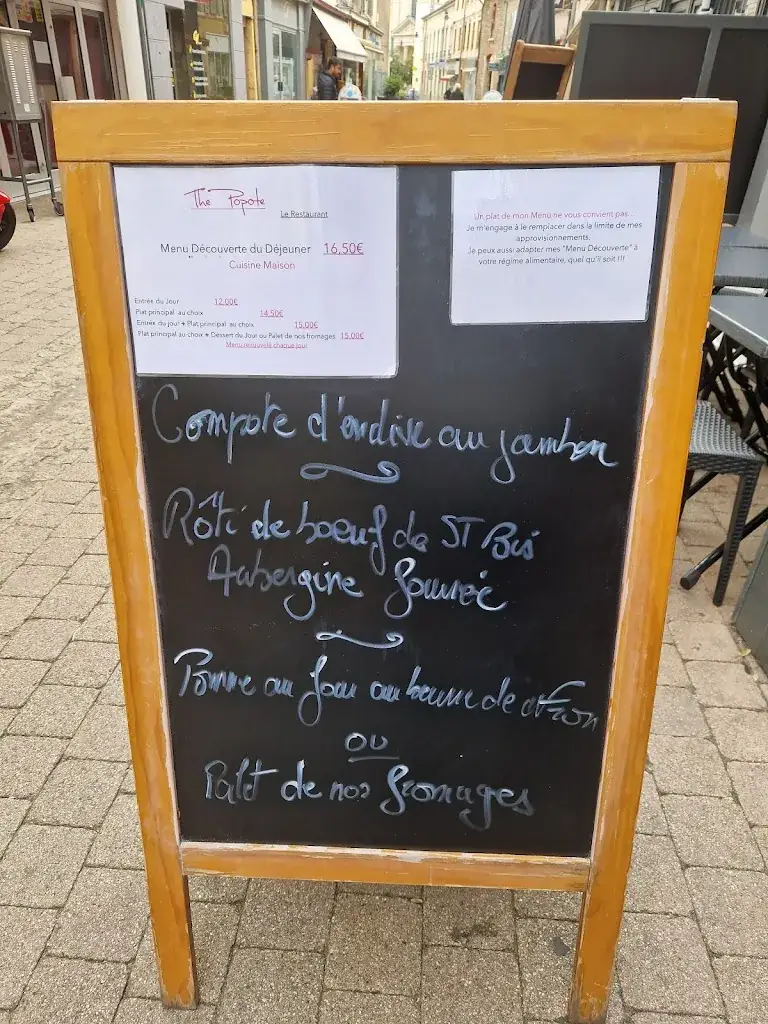 The Popote
Le Restaurant
Menu Découverte du Déjeuner 16,50€
Cuisine Maison
Entrée du Jour 12,00€
Plat principal au choix 14,50€
Entrée du jour + Plat principal au choix 15,00€
Plat principal au choix + Dessert du Jour ou Palet de nos fromages 15,00€
Menu renouvelé chaque jour
Un plat de mon Menu ne vous convient pas...
Je m'engage à le remplacer dans la limite de mes
approvisionnements.
Je peux aussi adapter mes "Menu Découverte" à
votre régime alimentaire, quel qu'il soit !!!
Compote d'endive au jambon
Rôti de boeuf de ST Bis
Aubergine
Pomme au four au beurre de
ou
Palet de nos fromages